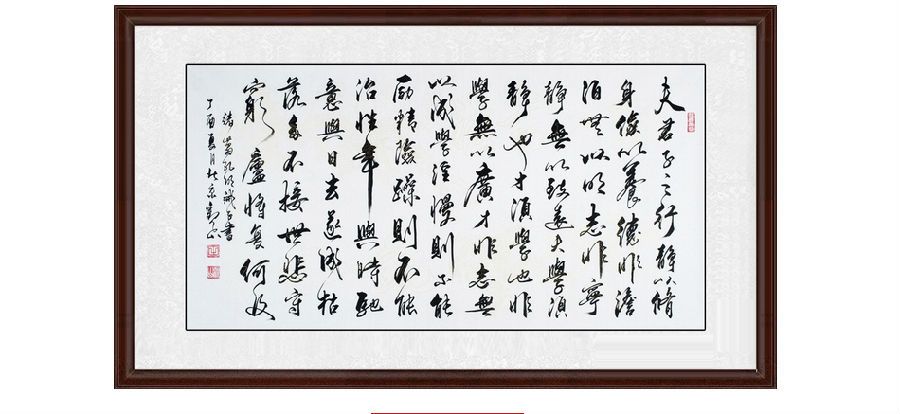 夫君子之行靜以脩
身儉以養德非澹
泊無以明志非寧
靜無以致遠夫學須
靜也才須學也非
學無以廣才非志無
以成學淫慢則不能
励精險躁則不能
冶性年與時馳
意與日去遂成枯
落多不接世悲守
窮廬將復何及
諸葛孔明誡子書
丁酉夏月於京